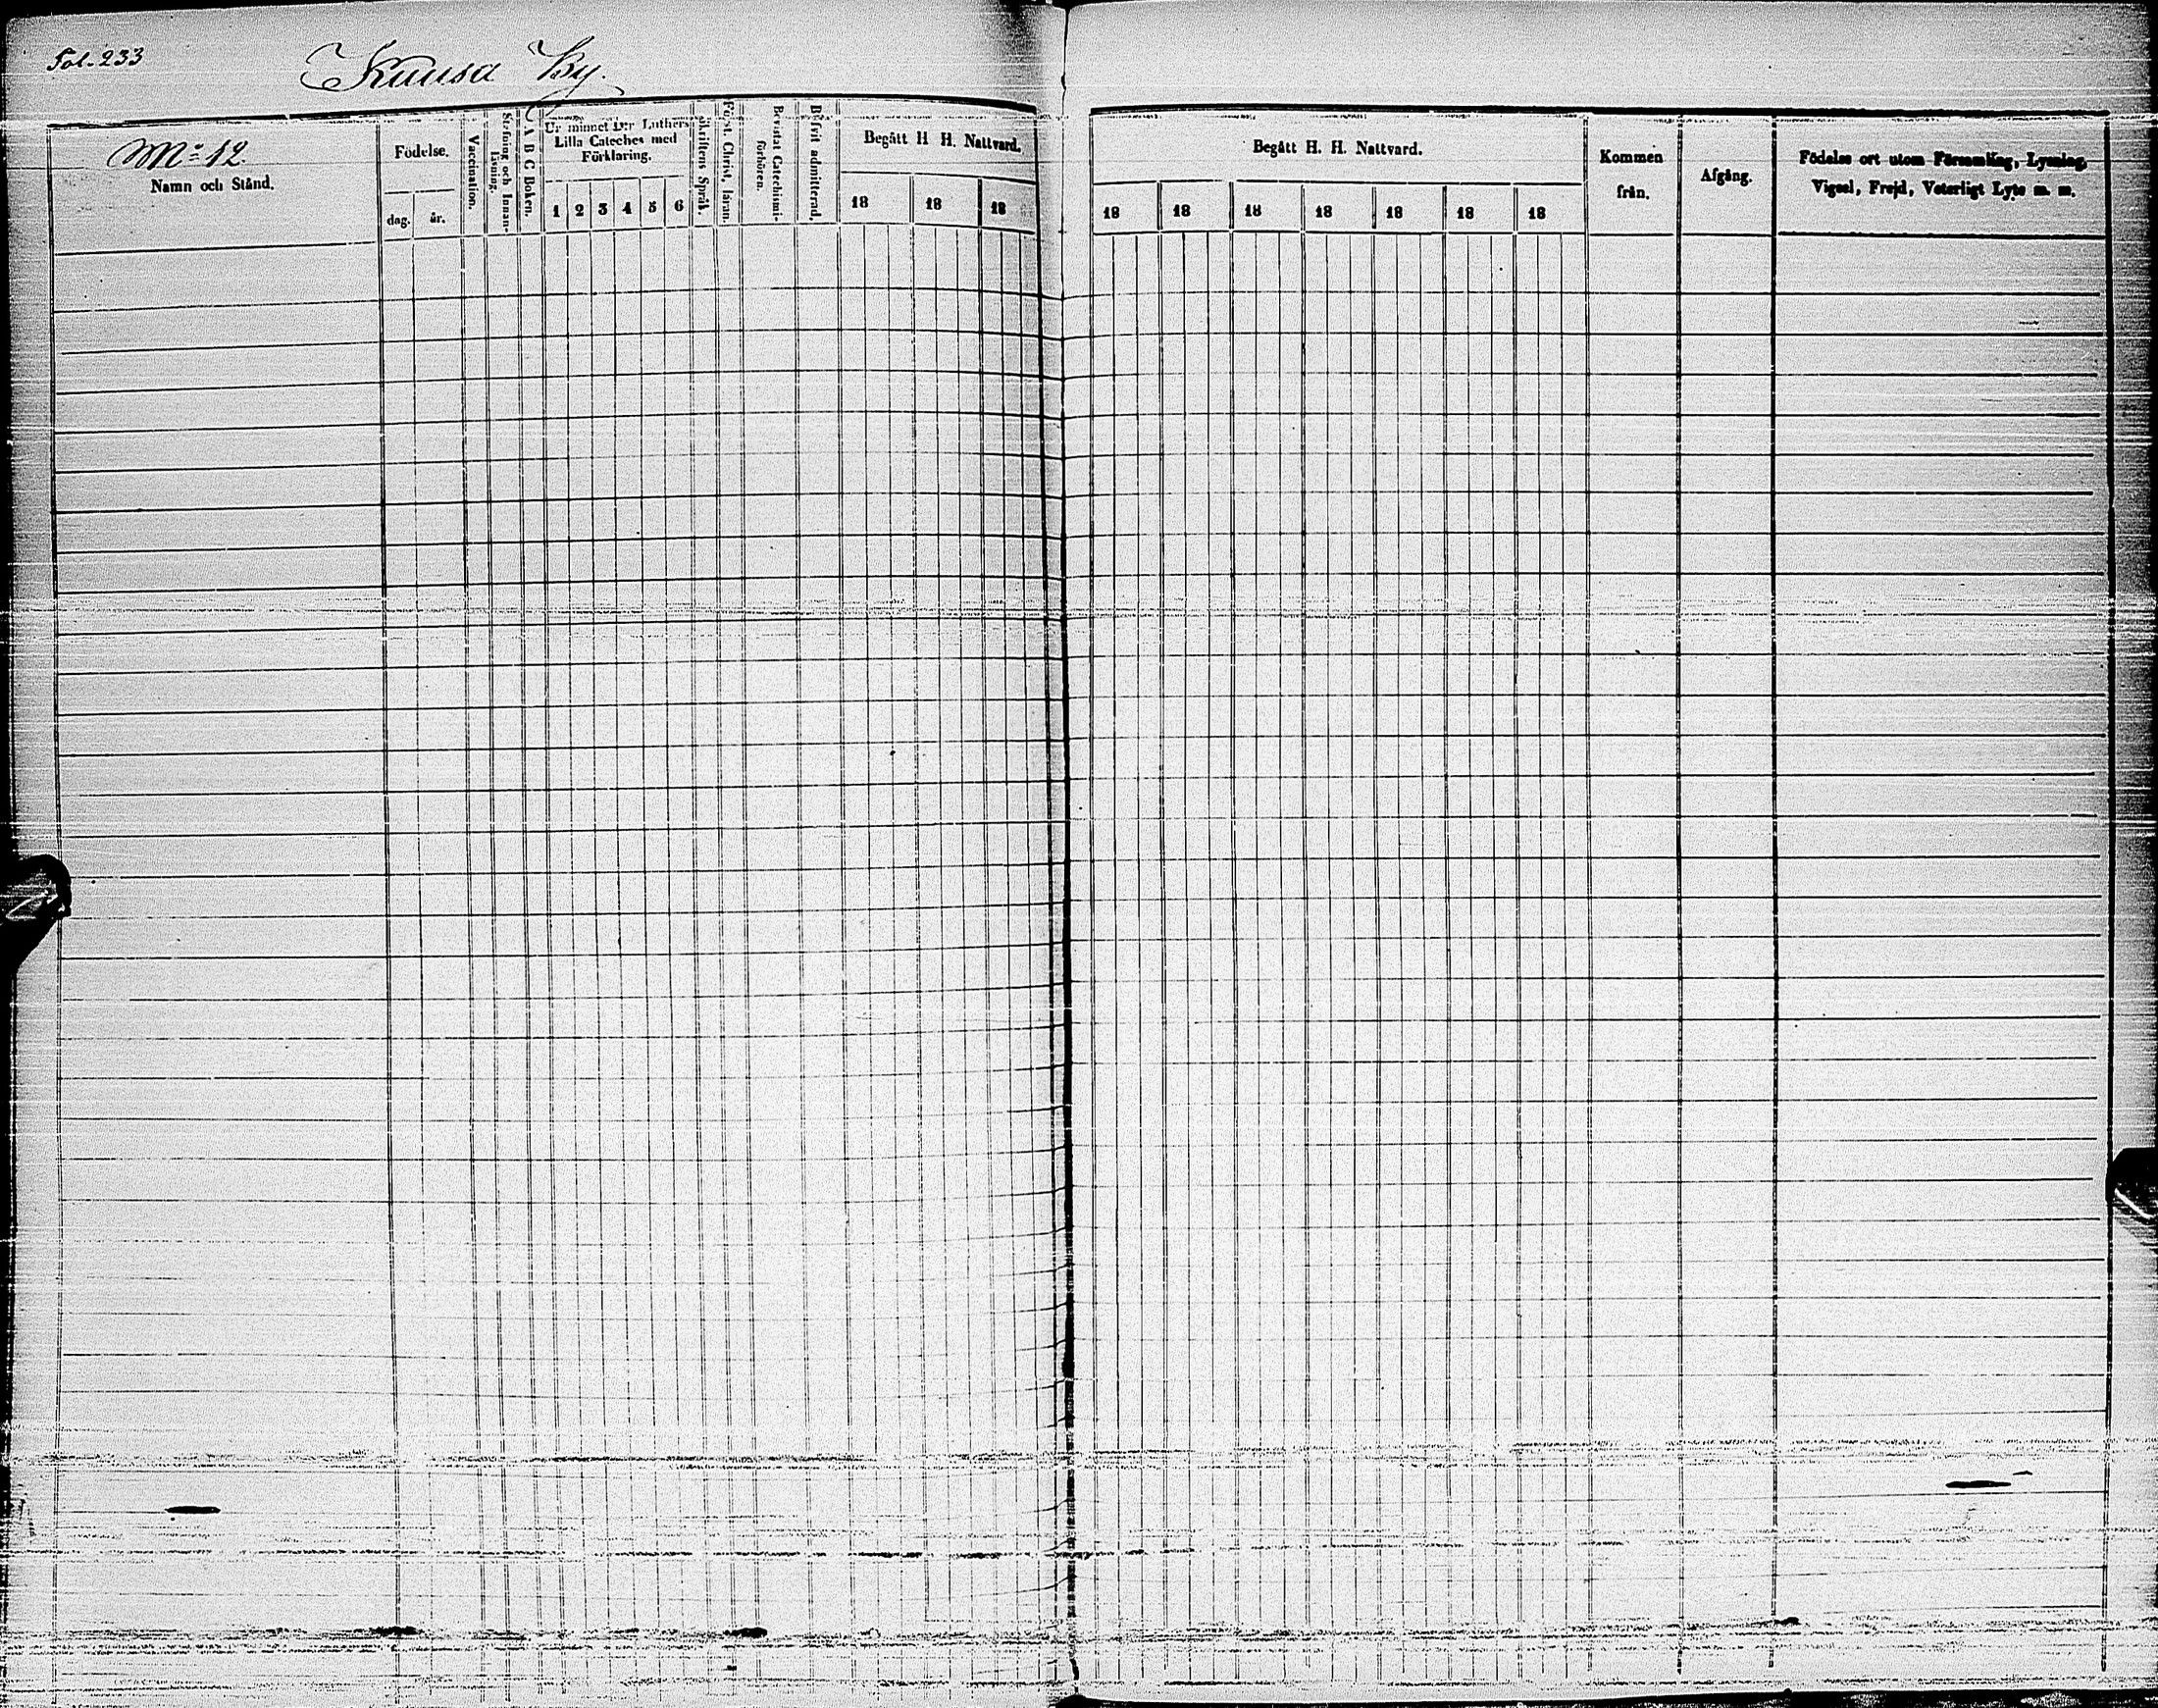 Fol. 233
Kuusa By.
No 12.
Namn och Stånd.
Födelse.
dag. år.
Vaccination.
Stafning och Innan-
läsning.
A B C Boken.
Ur minnet D:r Luthers
Lilla Cateches med
Förklaring.
1 2 3 4 5 6
Skriftens Språk.
Först. Christ. läran.
Bevistat Catechismi-
förhören.
Blifvit admitterad.
Begått H. H. Nattvard.
18 18 18
Begått H. H. Nattvard.
18 18 18 18 18 18 18
Kommen
från.
Afgång.
Födelse ort utom Församling, Lysning,
Vigsel, Frejd, Veterligt Lyte m. m.